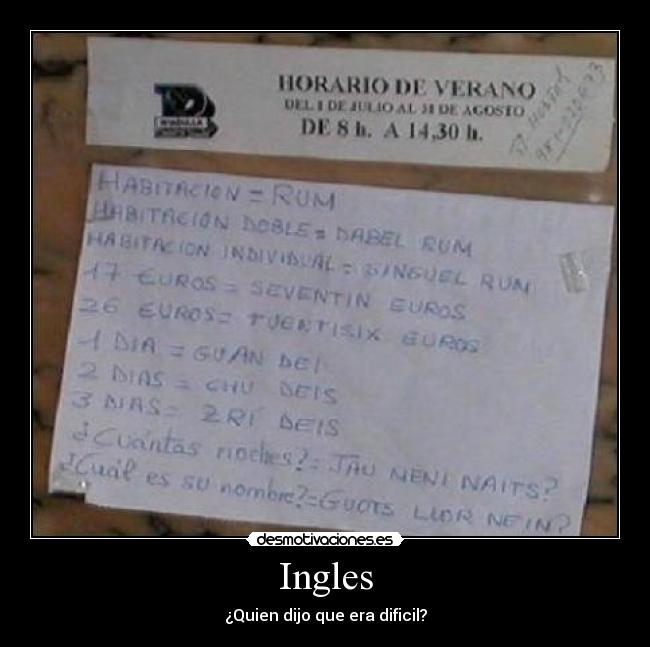 HORARIO DE VERANO
DEL 1 DE JULIO AL 31 DE AGOSTO
DE 8 h. A 14,30 h.
HABITACION = RUM
HABITACIÓN DOBLE = DABEL RUM
HABITACION INDIVIDUAL = SINGUEL RUM
17 EUROS = SEVENTIN EUROS
26 EUROS = TUENTISIX EUROS
1 DIA = GUAN DEI
2 DIAS = CHU DEIS
3 DIAS = ZRÍ DEIS
¿Cuántas noches? = JAU MENI NAITS?
¿Cuál es su nombre? = GUOTS LLOR NEIN?
desmotivaciones.es
Ingles
¿Quien dijo que era dificil?